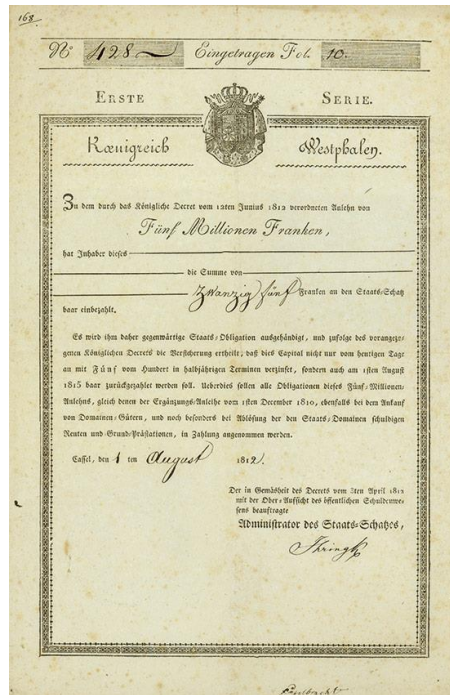 168.
No 428 Eingetragen Fol. 10.
ERSTE SERIE.
Kœnigreich Westphalen.
Zu dem durch das Königliche Decret vom 12ten Junius 1812 verordneten Anlehn von
Fünf Millionen Franken,
hat Inhaber dieses
die Summe von
Zwanzig fünf Franken an den Staats-Schatz
baar einbezahlt.
Es wird ihm daher gegenwärtige Staats-Obligation ausgehändigt, und zufolge des vorangezo-
genen Königlichen Decrets die Versicherung ertheilt, daß dies Capital nicht nur vom heutigen Tage
an mit Fünf vom Hundert in halbjährigen Terminen verzinset, sondern auch am 1sten August
1815 baar zurückgezahlt werden soll. Ueberdies sollen alle Obligationen dieses Fünf-Millionen-
Anlehns, gleich denen der Ergänzungs-Anleihe vom 1sten December 1810, ebenfalls bei dem Ankauf
von Domainen-Gütern, und noch besonders bei Ablösung der den Staats-Domainen schuldigen
Renten und Grund-Prästationen, in Zahlung angenommen werden.
Cassel, den 1 ten August 1812.
Der in Gemäsheit des Decrets vom 3ten April 1812
mit der Ober-Aufsicht des öffentlichen Schuldenwe-
sens beauftragte
Administrator des Staats-Schatzes,